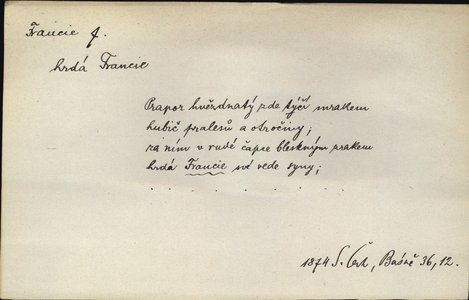 Francie f.
hrdá Francie
Prapor hvězdnatý zde týčí mrakem
hubič pralesů a otročiny;
za ním v rudé čapce bleskným zrakem
hrdá Francie své vede syny;
. . . . . . . . . .
1874 S. Čech, Básně 36, 12.